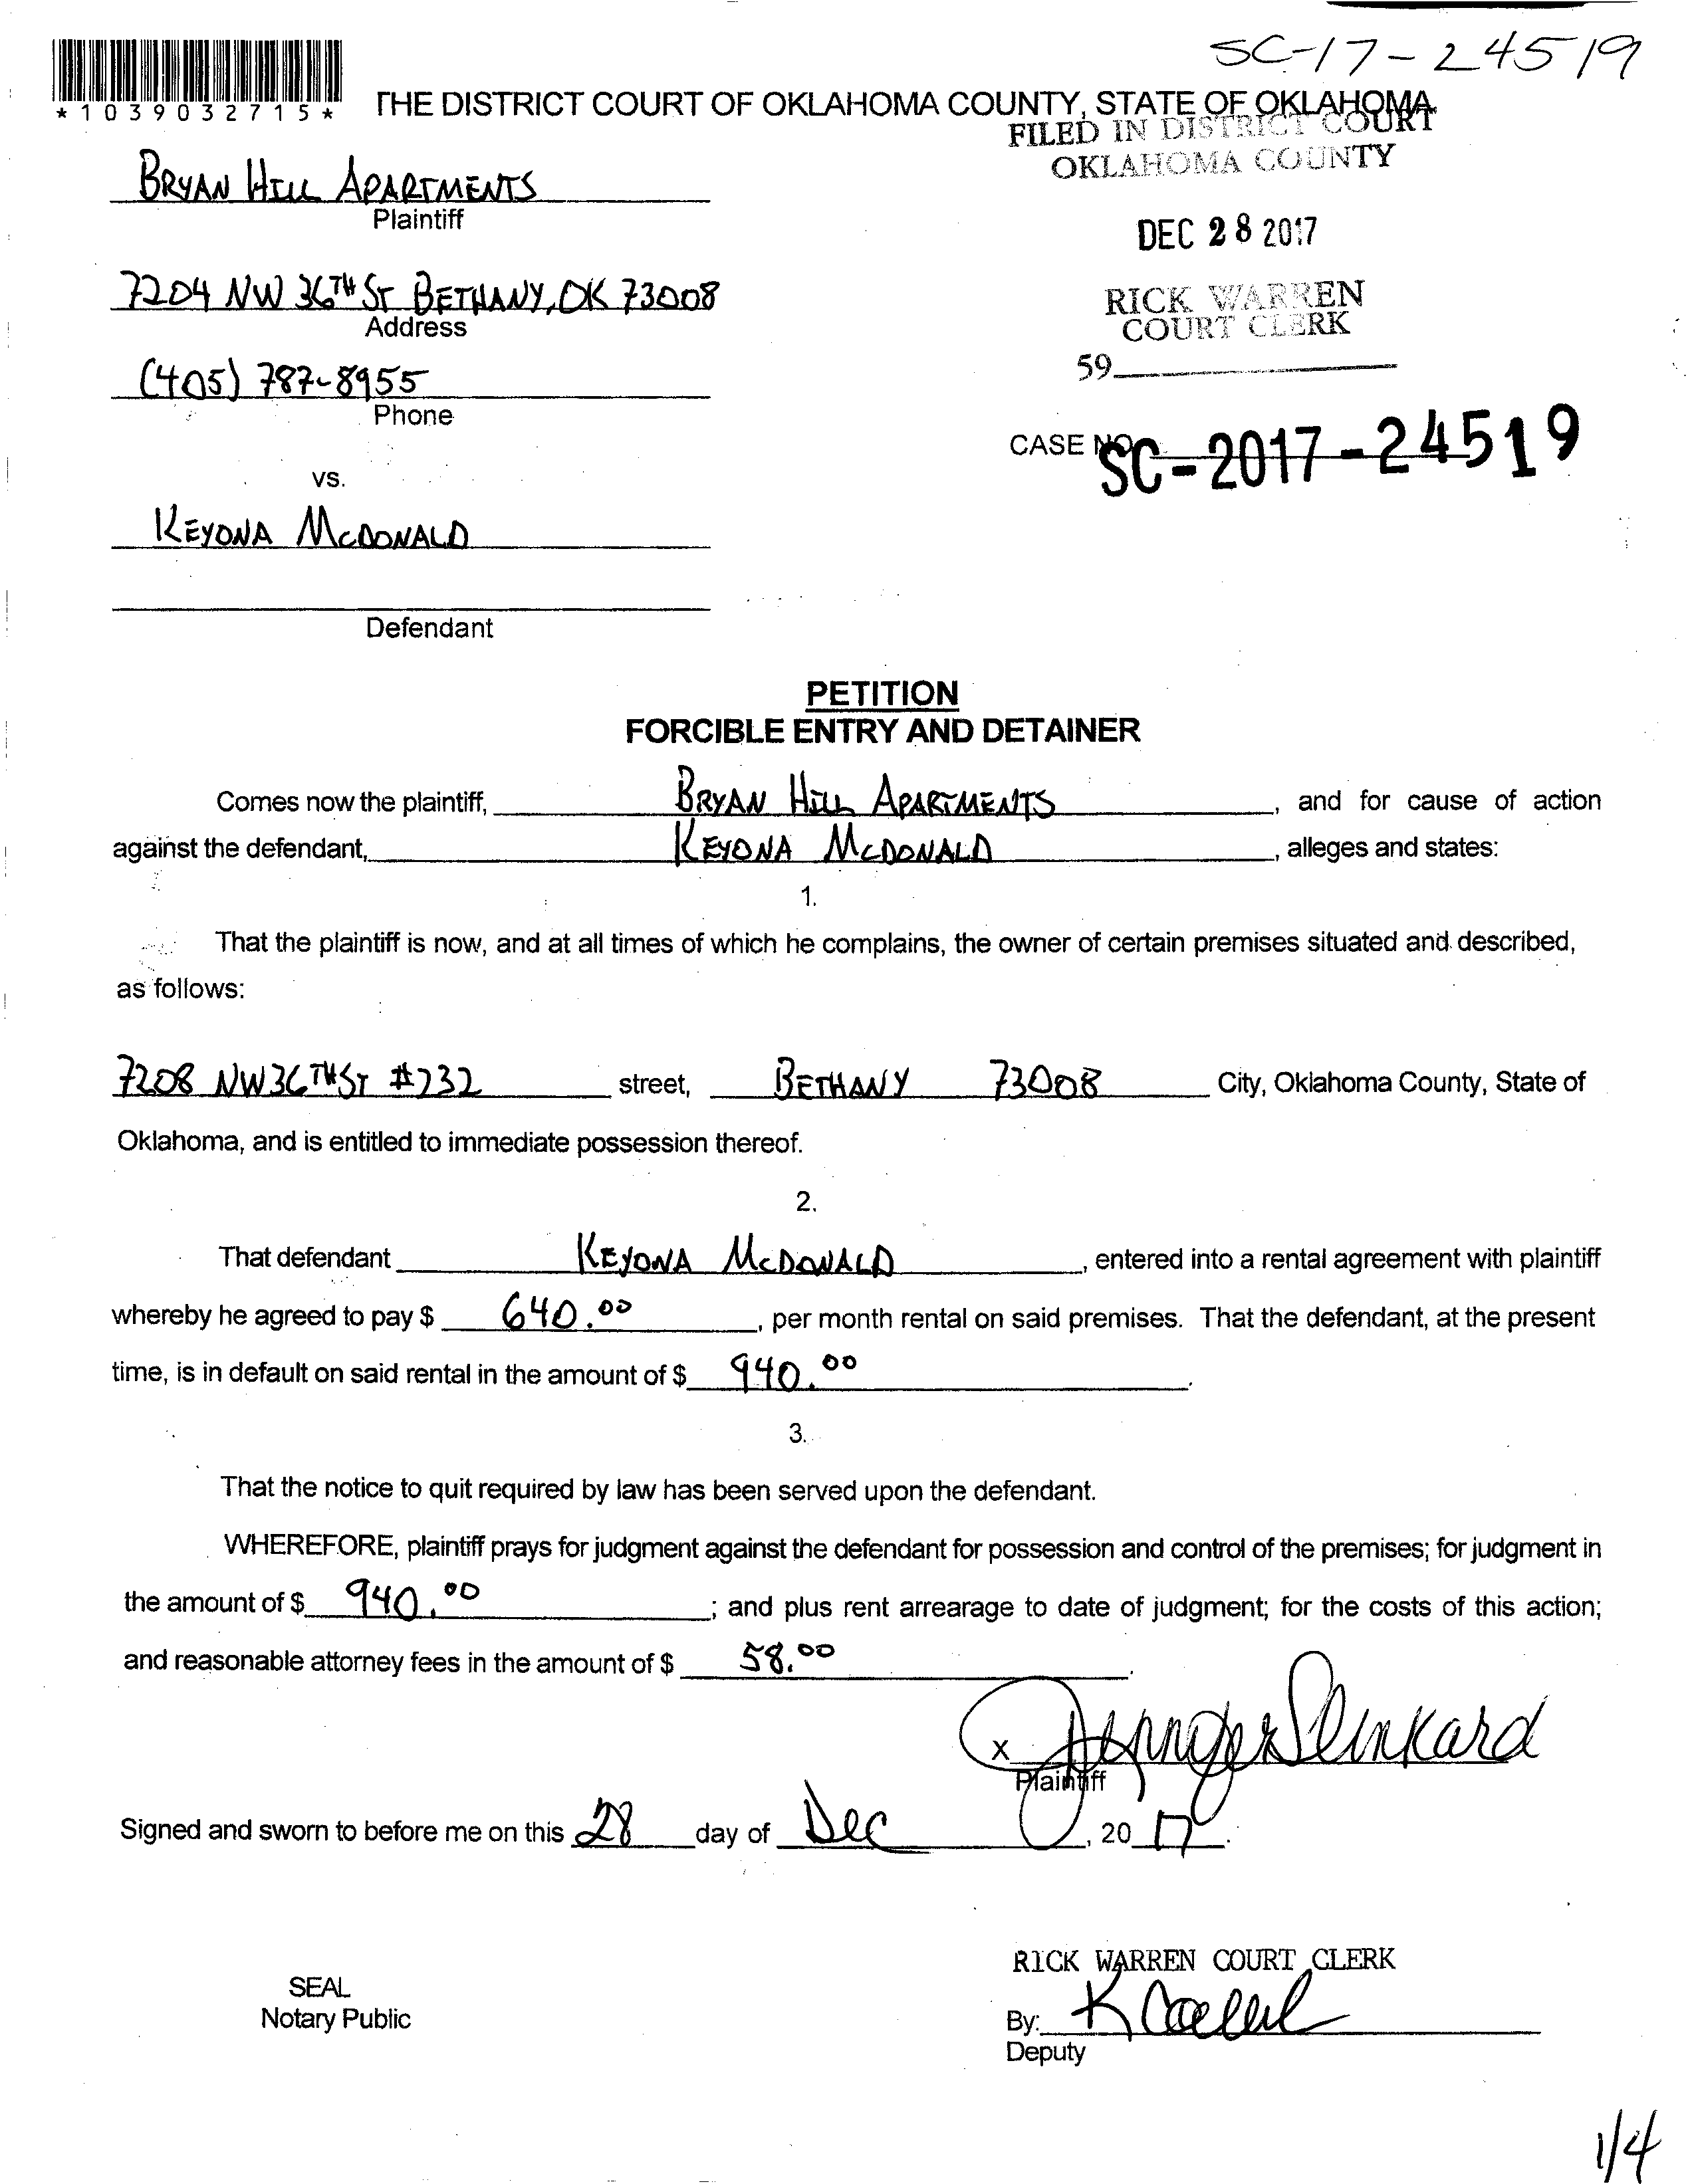 SC-17-24519
*1039032715*
THE DISTRICT COURT OF OKLAHOMA COUNTY, STATE OF OKLAHOMA
FILED IN DISTRICT COURT
OKLAHOMA COUNTY
BRYAN HILL APARTMENTS
Plaintiff
DEC 28 2017
7204 NW 36TH ST BETHANY, OK 73008
Address
RICK WARREN
COURT CLERK
59
(405) 787-8955
Phone
CASE NO. SC-2017-24519
vs.
KEYONA MCDONALD
Defendant
PETITION
FORCIBLE ENTRY AND DETAINER
Comes now the plaintiff, BRYAN HILL APARTMENTS, and for cause of action
against the defendant, KEYONA MCDONALD, alleges and states:
1.
That the plaintiff is now, and at all times of which he complains, the owner of certain premises situated and described,
as follows:
7208 NW 36TH ST #232 street, BETHANY 73008 City, Oklahoma County, State of
Oklahoma, and is entitled to immediate possession thereof.
2.
That defendant KEYONA MCDONALD, entered into a rental agreement with plaintiff
whereby he agreed to pay $ 640.00, per month rental on said premises. That the defendant, at the present
time, is in default on said rental in the amount of $ 940.00.
3.
That the notice to quit required by law has been served upon the defendant.
WHEREFORE, plaintiff prays for judgment against the defendant for possession and control of the premises; for judgment in
the amount of $ 940.00; and plus rent arrearage to date of judgment; for the costs of this action;
and reasonable attorney fees in the amount of $ 58.00.
x Jennifer Slinkard
Plaintiff
Signed and sworn to before me on this 28 day of Dec, 2017.
RICK WARREN COURT CLERK
SEAL
Notary Public
By: K
Deputy
1/4